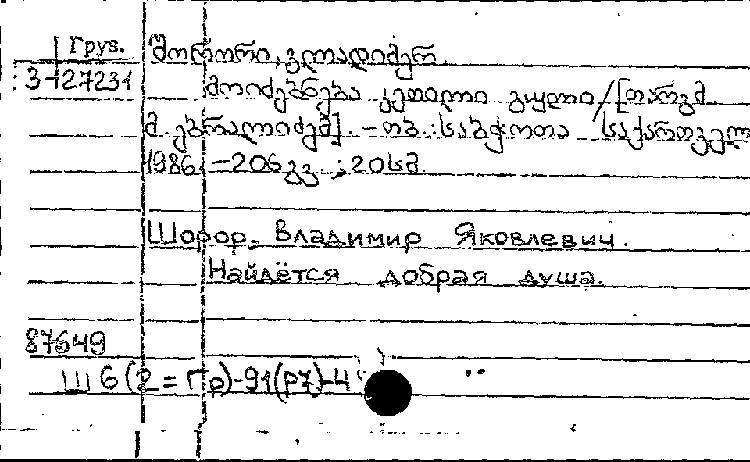 Груз.
3-27231
შორორი, ვლადიმერ.
მოიძებნება კეთილი გული/[თარგმ.
მ. ებრალიძემ]. - თბ.: საბჭოთა საქართველო
1986. - 206 გვ.; 20 სმ.
Шорор, Владимир Яковлевич.
Найдётся добрая душа.
87649
Ш 6(2=Гр)-91(Р7)-4